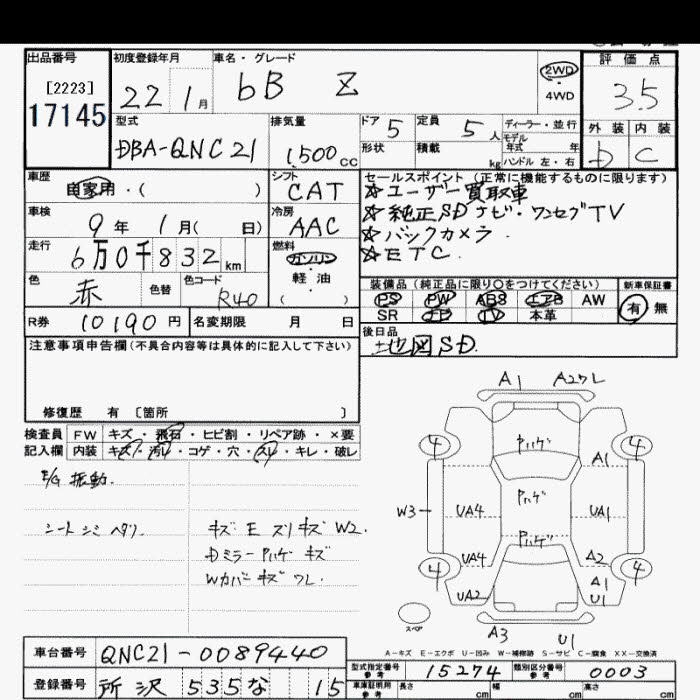 出品番号 初度登録年月 車名・グレード 評価点
[2223] 22 1月 bB Z 2WD・4WD 3.5
17145
型式 排気量 ドア 5 定員 5人 ディーラー・並行 外装 内装
DBA-QNC21 1,500cc 形状 積載 kg モデル年式 年 ハンドル 左・右 D C
車歴 自家用・( ) シフト CAT セールスポイント(正常に機能するものに限ります)
☆ユーザー買取車
車検 9年 1月( 日) 冷房 AAC ☆純正SDナビ・ワンセグTV
☆バックカメラ
走行 6万0千832km 燃料 ガソリン・軽油・( ) ☆ETC
色 赤 色替 色コード R40 装備品(純正品に限り○をつけてください) 新車保証書
PS PW ABS エアB AW 有・無
SR TV 本革
R券 10190円 名変期限 月 日 後日品
地図SD
注意事項申告欄(不具合内容等は具体的に記入して下さい)
修復歴 有〔箇所 〕
検査員 FW キズ・飛石・ヒビ割・リペア跡・×要
記入欄 内装 キズ・汚レ・コゲ・穴・スレ・キレ・破レ
E/G 振動
シートシミヘタリ キズEスリキズW2.
Dミラー Pハゲ キズ
Wカバーキズワレ
A1 A2ワレ
4 Pハゲ 4
A1
Pハゲ
W3 UA4 UA1
Pハゲ
UA4 A2
4 4
A1
UA2 U1
スペア
A3 U1
A-キズ E-エクボ U-凹み W-補修跡 S-サビ C-腐食 XX-交換済
車台番号 QNC21-0089440
型式指定番号 参考 15274 類別区分番号 参考 0003
登録番号 所沢 535 な 15 車庫証明用 参考 長さ cm 幅 cm 高さ cm